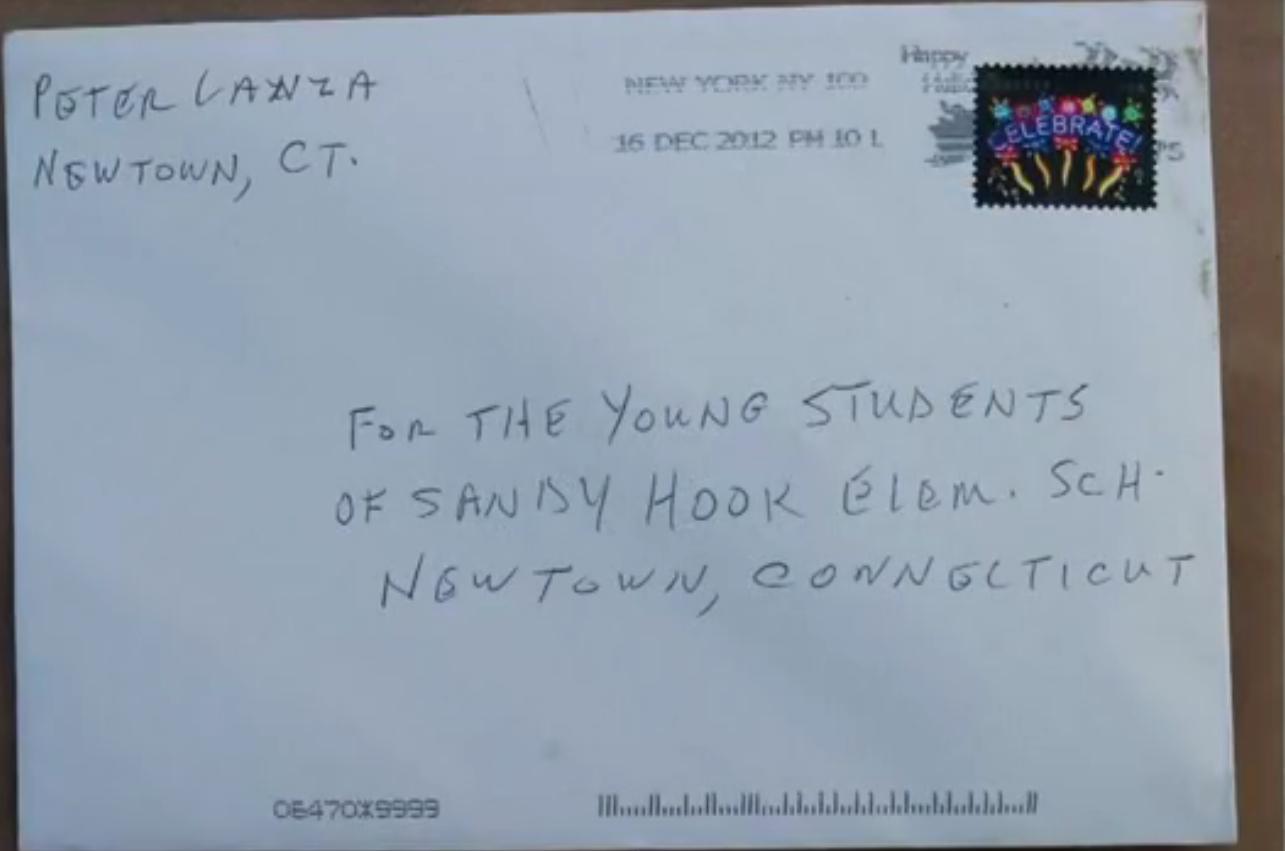 PETER LANZA
NEWTOWN, CT.
NEW YORK NY 100
16 DEC 2012 PM 10 L
Happy
CELEBRATE!
FOR THE YOUNG STUDENTS
OF SANDY HOOK ELEM. SCH.
NEWTOWN, CONNECTICUT
06470X9999